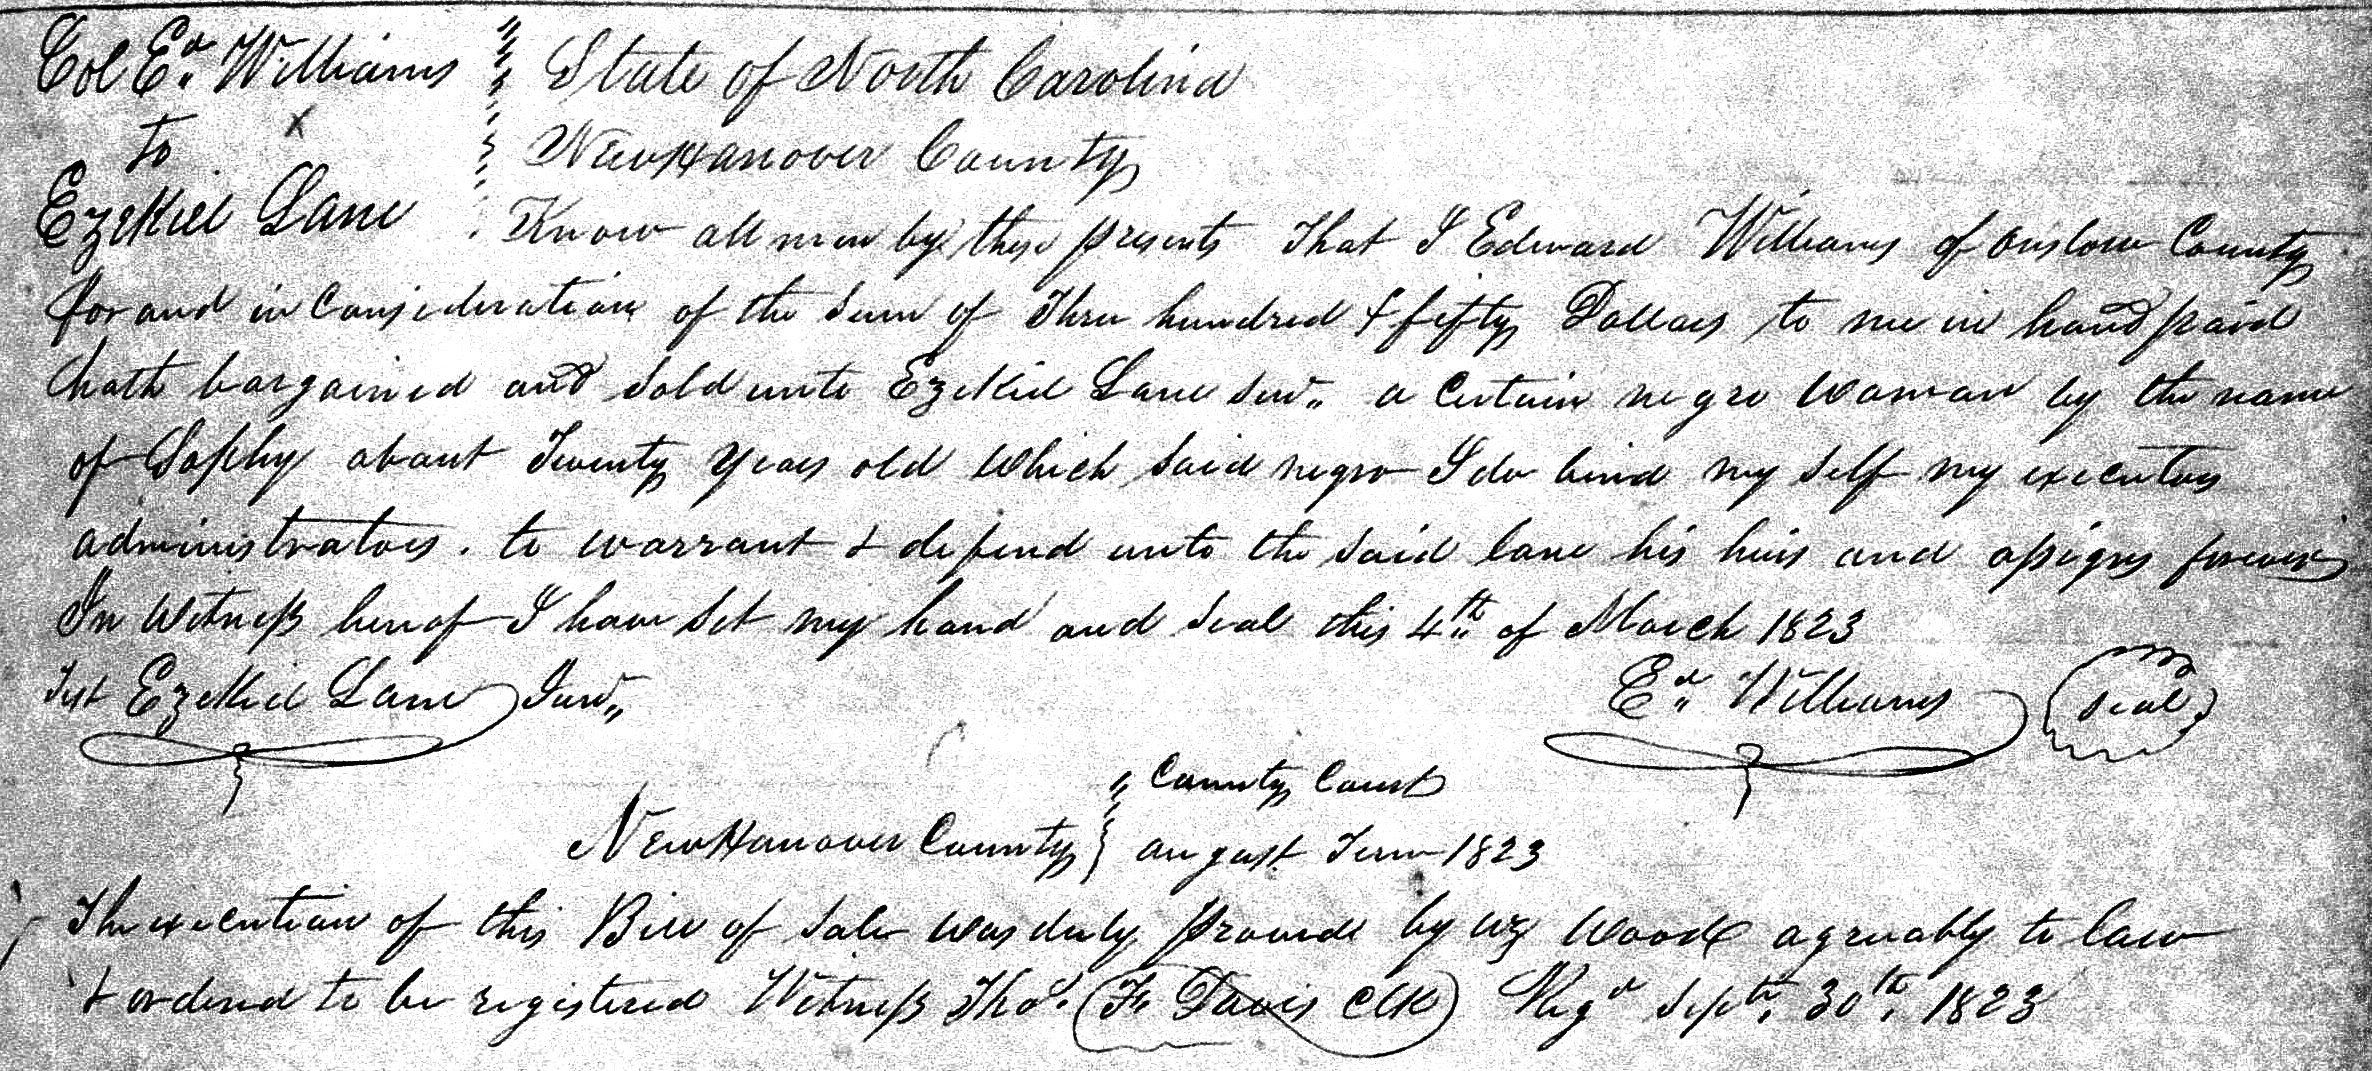 Col Ed. Williams State of North Carolina
to New Hanover County
Ezekiel Lane Know all men by these presents That I Edward Williams of Onslow County
for and in Consideration of the Sum of Three hundred & fifty Dollars to me in hand paid
hath bargained and Sold unto Ezekiel Lane Senr. a Certain negro Woman by the name
of Sophy about Twenty Years old Which Said negro I do bind my Self my executors
administrators. to warrant & defend unto the Said Lane his heirs and assigns forever
In Witness hereof I have Set my hand and Seal this 4th. of March 1823
Test Ezekiel Lane Junr. Ed. Williams Seal
County Court
New Hanover County August Term 1823
The execution of this Bill of Sale was duly proved by Wood agreeably to law
& ordered to be registered Witness Thos. F. Davis Clk Regd Sept. 30th. 1823